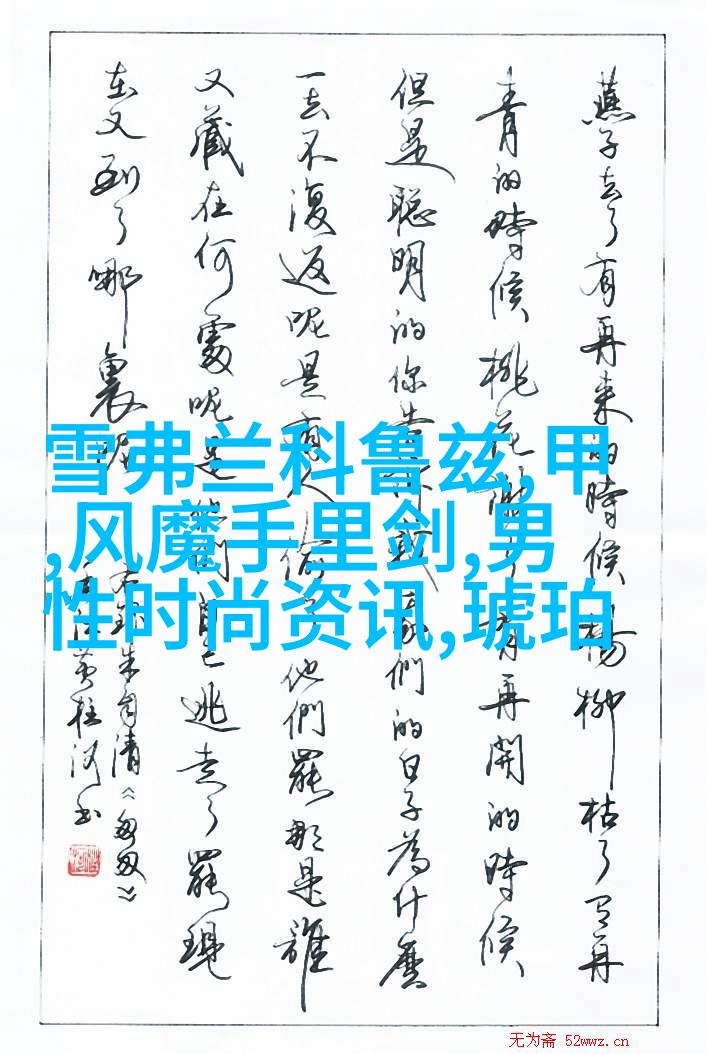 燕子去了有再来的時候楊柳枯了有再
青的時候桃花謝了有再開的時候
但是聰明的你告訴我我們的日子為什麼
一去不復返呢是有人偷了他們罷那是誰
又藏在何處呢是他們自己逃走了罷現
在又到了哪裏呢
右錄朱自清《匆匆》
雪弗兰科鲁兹,甲
,风魔手里剑,男
性时尚资讯,琥珀
无为斋 52wwz.cn